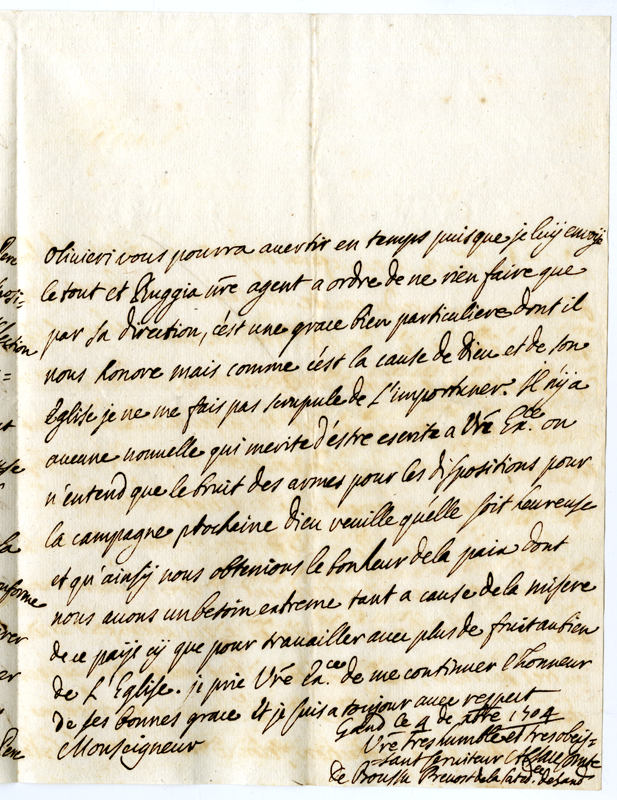 olivieri vous pourra avertir en temps puisque je luy envoye
le tout et Ruggia nre agent a ordre de ne rien faire que
par sa direction, c'est une grace bien particuliere dont il
nous honore mais comme c'est la cause de Dieu et de son
Eglise je ne me fais pas scrupule de L'importuner. Il n'y a
aucune nouvelle qui merite d'estre escrite a Vre Exce. on
n'entend que le bruit des armes pour les dispositions pour
la campagne prochaine Dieu veuille qu'elle soit heureuse
et qu'ainsy nous obtenions le bonheur de la paix dont
nous avons un besoin extreme tant a cause de la misere
de ce paije cy que pour travailler avec plus de fruit au bien
de L'Eglise. je prie Vre Exce. de me continuer l'honneur
de ses bonnes grace Et je suis a toujour avec respect
Monseigneur
Gand ce 4 de 1704
Vre tres humble et tres obeis=
sant serviteur
de Boussu Prevost de la Cated. de Gand